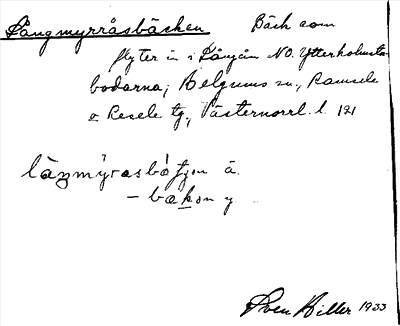 Långmyrråsbäcken Bäck som
flyter in i Långån NO. Ytterholmsta
bodarna; Helgums sn., Ramsele
o Resele tg., Västernorrl. l. 121
låŋmýrasbɛ́tʃən ä.
– bækən y
Sven Hiller 1933